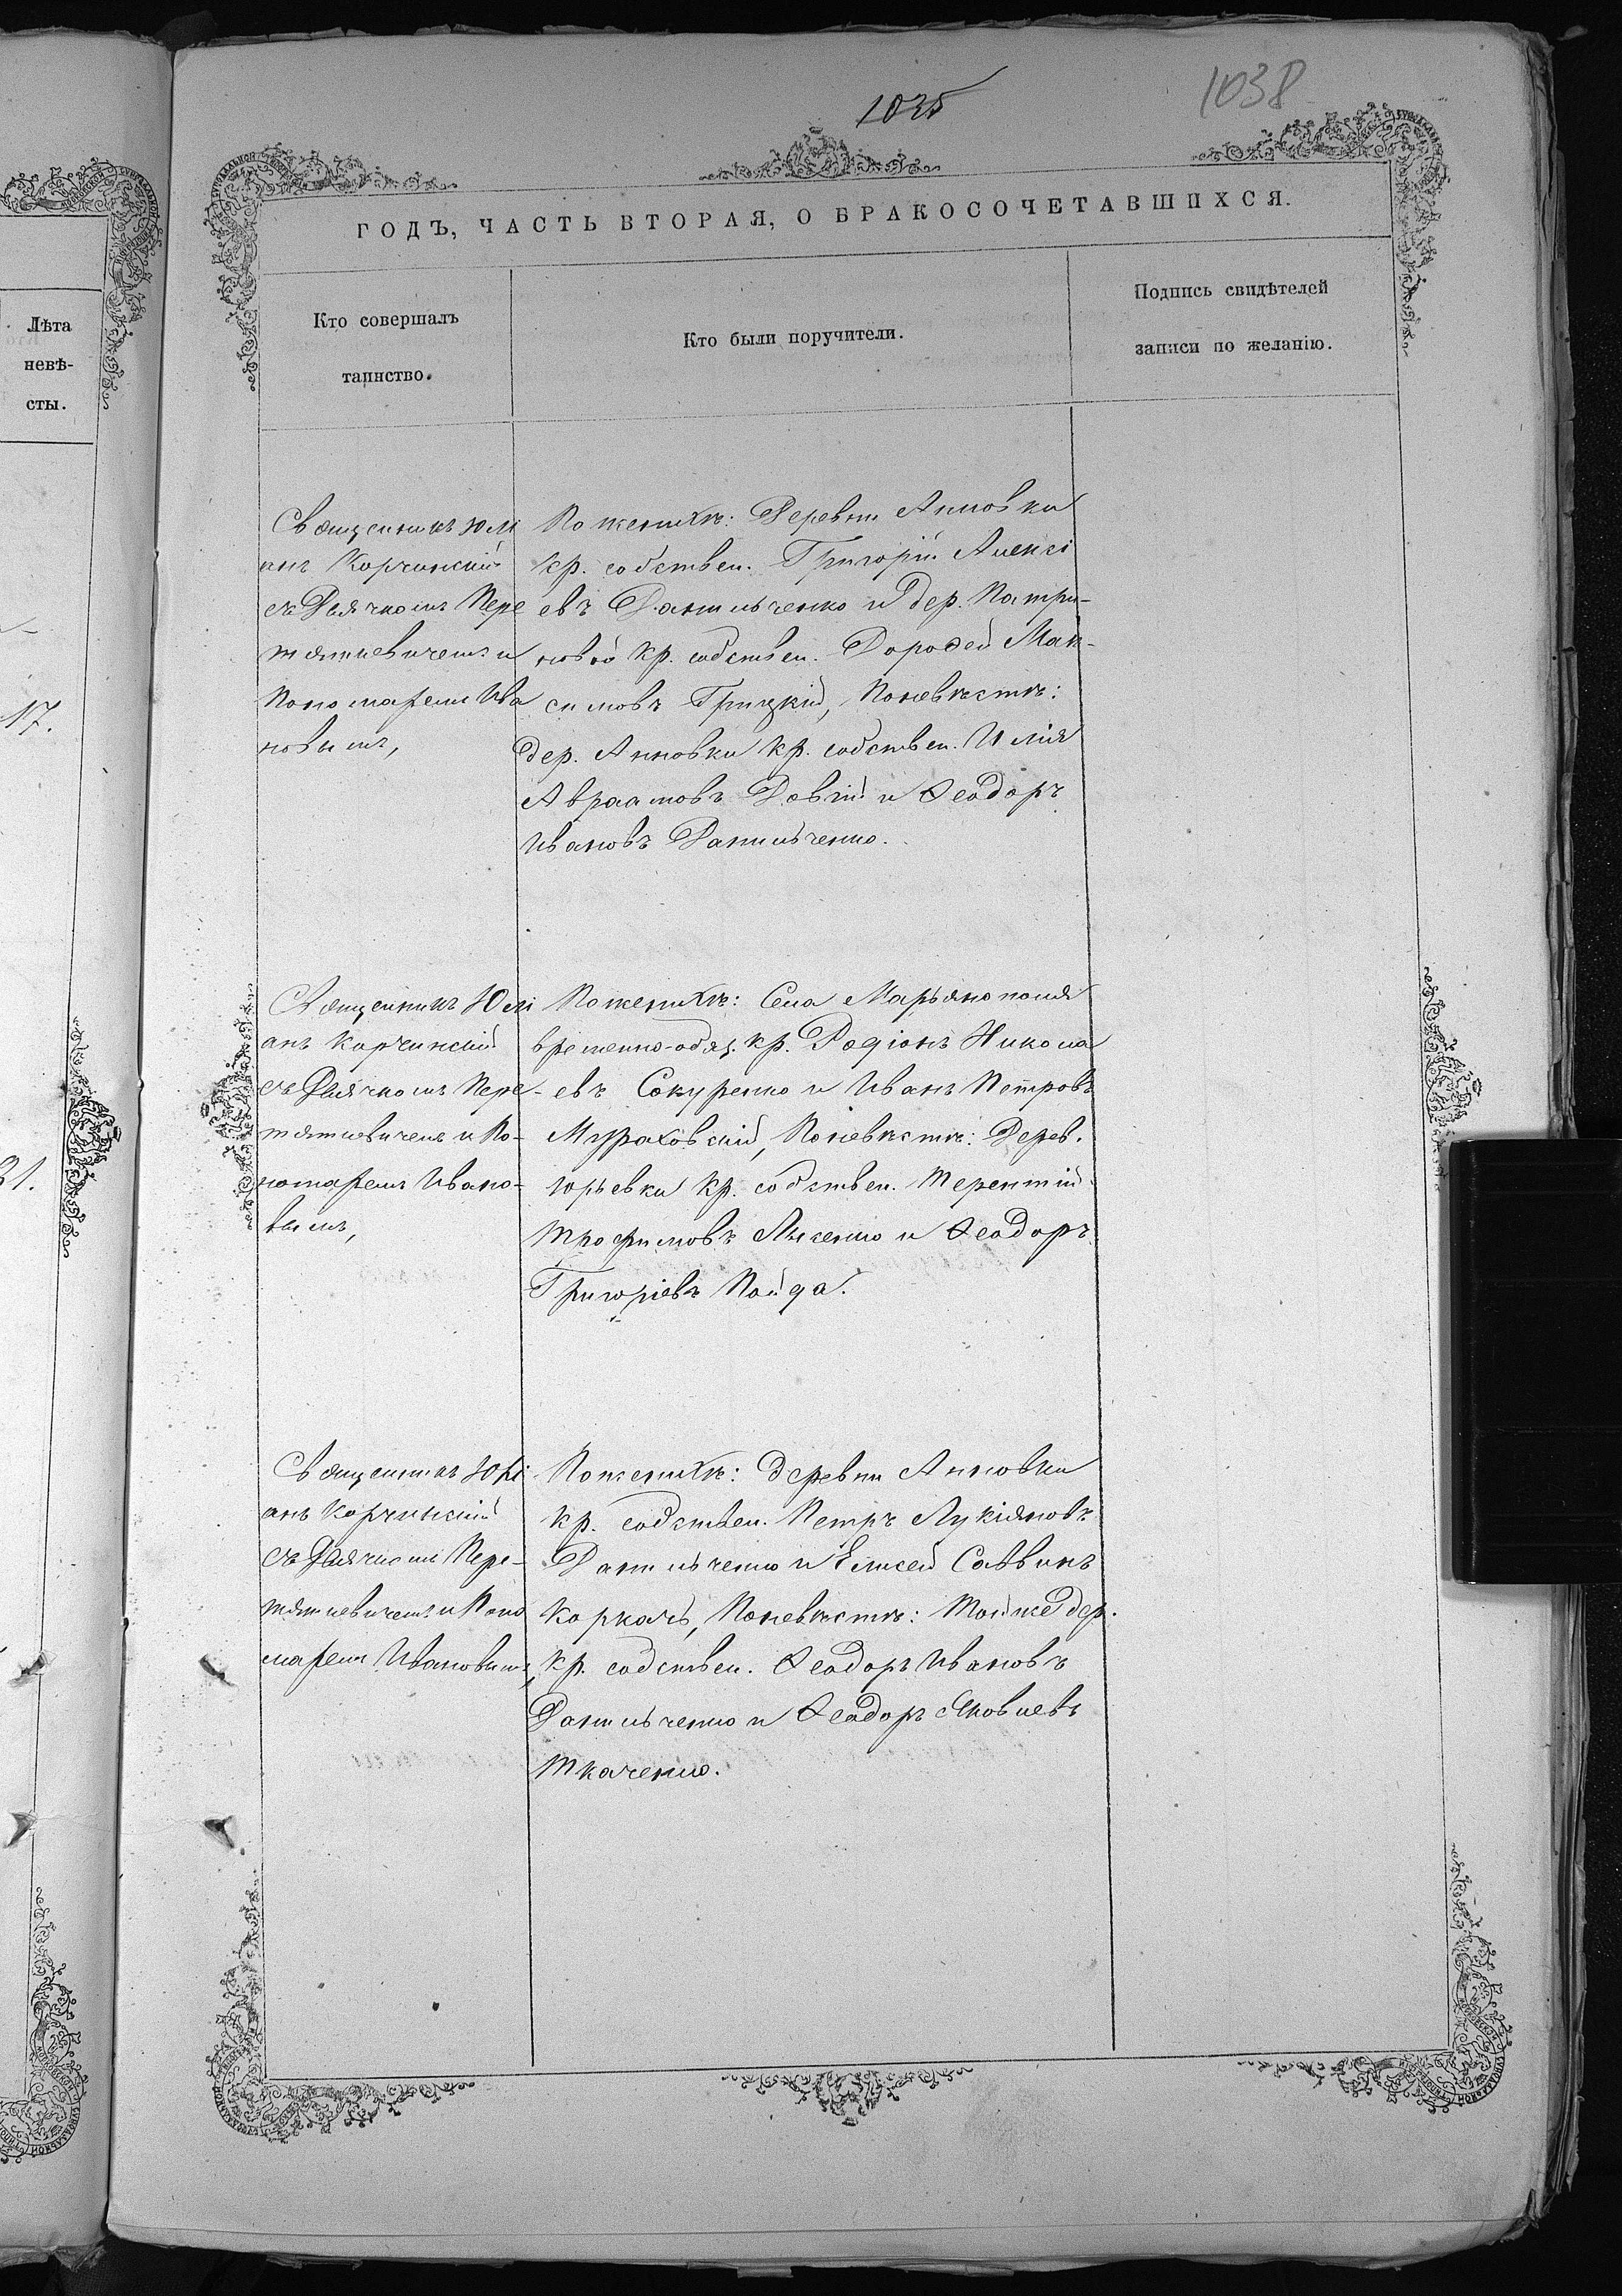 1035
1038
ГОДЪ, ЧАСТЬ ВТОРАЯ, О БРАКОСОЧЕТАВШИХСЯ.
Лѣта
невѣ-
сты.
17.
21.
Кто совершалъ
таинство.
Кто были поручители.
Подпись свидѣтелей
записи по желанію.
Священникъ Юлі
анъ Корчинскій
съ Дьячкомъ Пере
тятковичемъ и
Пономаремъ Ива
новымъ,
По женихѣ: Деревни Анновки
кр. собствен. Григорій Алексі
евъ Данильченко и дер. Патри-
новой кр. собствен. Дорофей Мак-
симовъ Грицкій, По невѣстѣ:
дер. Анновки кр. собствен. Илія
Авраамовъ Довгій и Ѳеодоръ
Ивановъ Данильченко.
Священникъ Юлі
анъ Корчинскій
съ Дьячкомъ Пере-
тятковичемъ и По-
номаремъ Ивано-
вымъ,
По женихѣ: Села Марьянополя
временно-обяз. кр. Родіонъ Никола
евъ Сокуренко и Иванъ Петровъ
Мураховскій, По невѣстѣ: Дерев.
Юрьевки кр. собствен. Терентій
Трофимовъ Лысенко и Ѳеодоръ
Григоріевъ Пойда.
Священникъ Юлі
анъ Корчинскій
съ Дьячкомъ Пере-
тятковичемъ и Поно
маремъ Ивановымъ,
По женихѣ: деревни Анновки
кр. собствен. Петръ Лукіяновъ
Данильченко и Елисей Саввинъ
Коркачъ, По невѣстѣ: Той же дер.
кр. собствен. Ѳеодоръ Ивановъ
Данильченко и Ѳеодоръ Яковлевъ
Ткаченко.